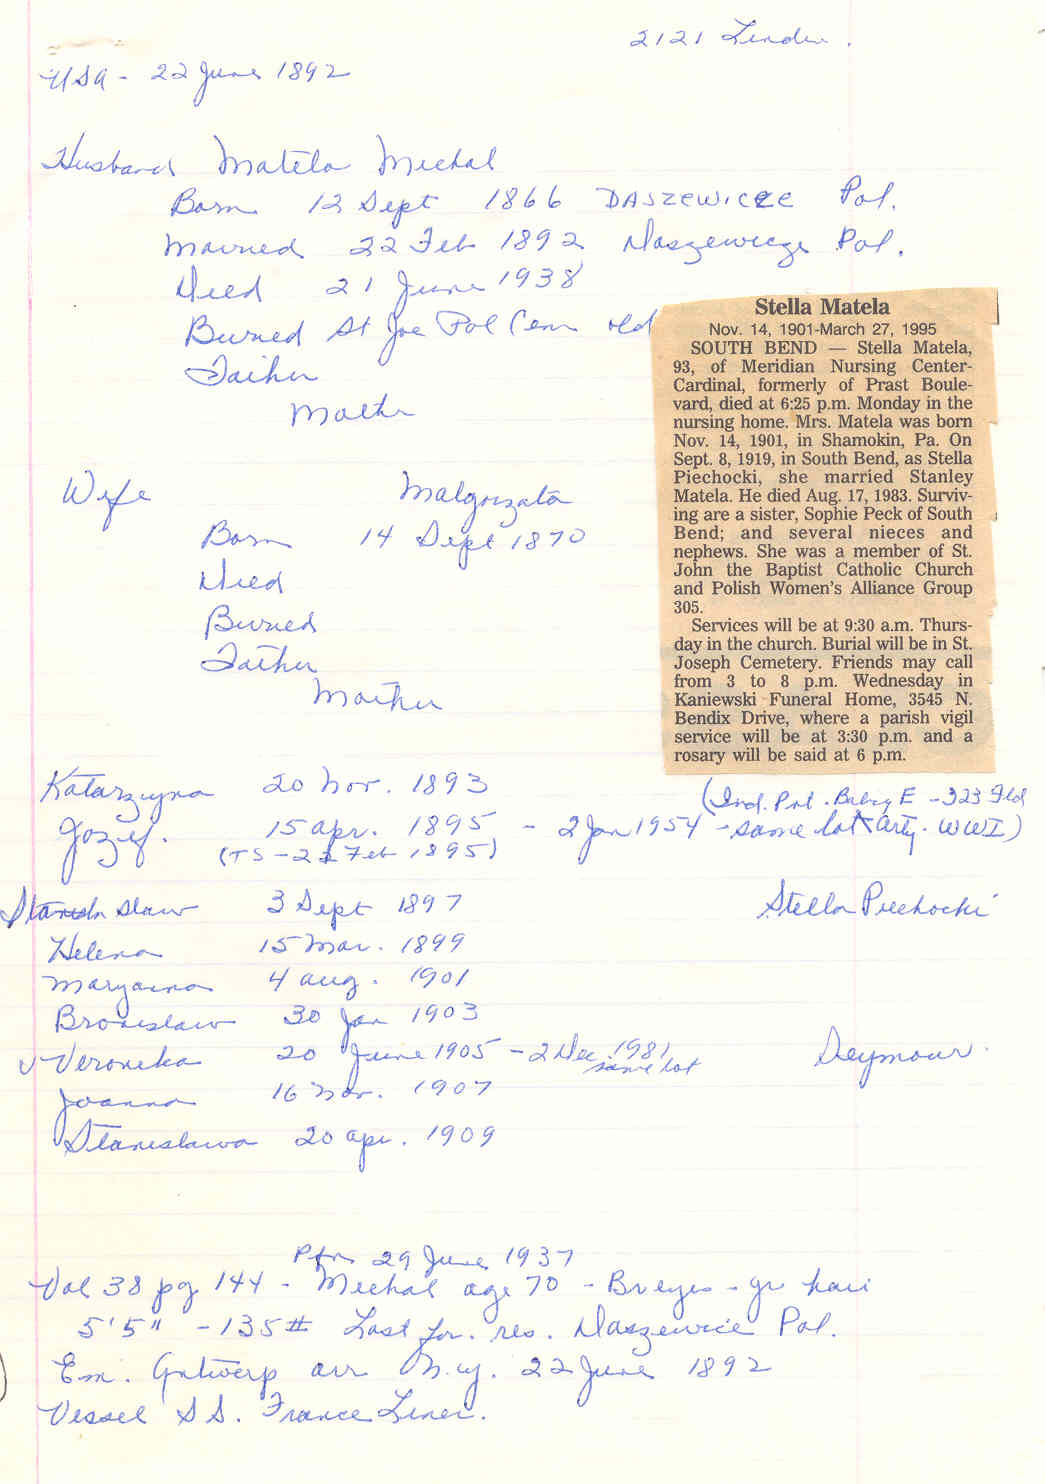 2121 Linden.
USA - 22 June 1892
Husband Matela Michal
Born 12 Sept 1866 DASZEWICZE Pol.
Married 22 Feb 1892 Daszewicze Pol.
Died 21 June 1938
Buried St Joe Pol Cem old
Father
Mother
Stella Matela
Nov. 14, 1901-March 27, 1995
SOUTH BEND — Stella Matela,
93, of Meridian Nursing Center-
Cardinal, formerly of Prast Boule-
vard, died at 6:25 p.m. Monday in the
nursing home. Mrs. Matela was born
Nov. 14, 1901, in Shamokin, Pa. On
Sept. 8, 1919, in South Bend, as Stella
Piechocki, she married Stanley
Matela. He died Aug. 17, 1983. Surviv-
ing are a sister, Sophie Peck of South
Bend; and several nieces and
nephews. She was a member of St.
John the Baptist Catholic Church
and Polish Women's Alliance Group
305.
Services will be at 9:30 a.m. Thurs-
day in the church. Burial will be in St.
Joseph Cemetery. Friends may call
from 3 to 8 p.m. Wednesday in
Kaniewski Funeral Home, 3545 N.
Bendix Drive, where a parish vigil
service will be at 3:30 p.m. and a
rosary will be said at 6 p.m.
Wife Malgorzata
Born 14 Sept 1870
Died
Buried
Father
Mother
Katarzyna 20 Nov. 1893
(Ind. Pvt. Batry E - 323 Fld
Jozef. 15 Apr. 1895 - 2 Jan 1954 - same lot Arty. WWI)
(TS - 22 Feb 1895)
Stanislaw 3 Sept 1897 Stella Piechocki
Helena 15 Mar. 1899
Maryanna 4 Aug. 1901
Bronislaw 30 Jan 1903
Veronika 20 June 1905 - 2 Dec 1981 Seymour.
same lot
Joanna 16 Nov. 1907
Stanislawa 20 Apr. 1909
29 June 1937
Vol 38 pg 144 - Michal age 70 - Br eyes - gr hair
5'5" - 135# Last for. res. Daszewice Pol.
Em. Antwerp arr N.Y. 22 June 1892
Vessel SS. France Liner.